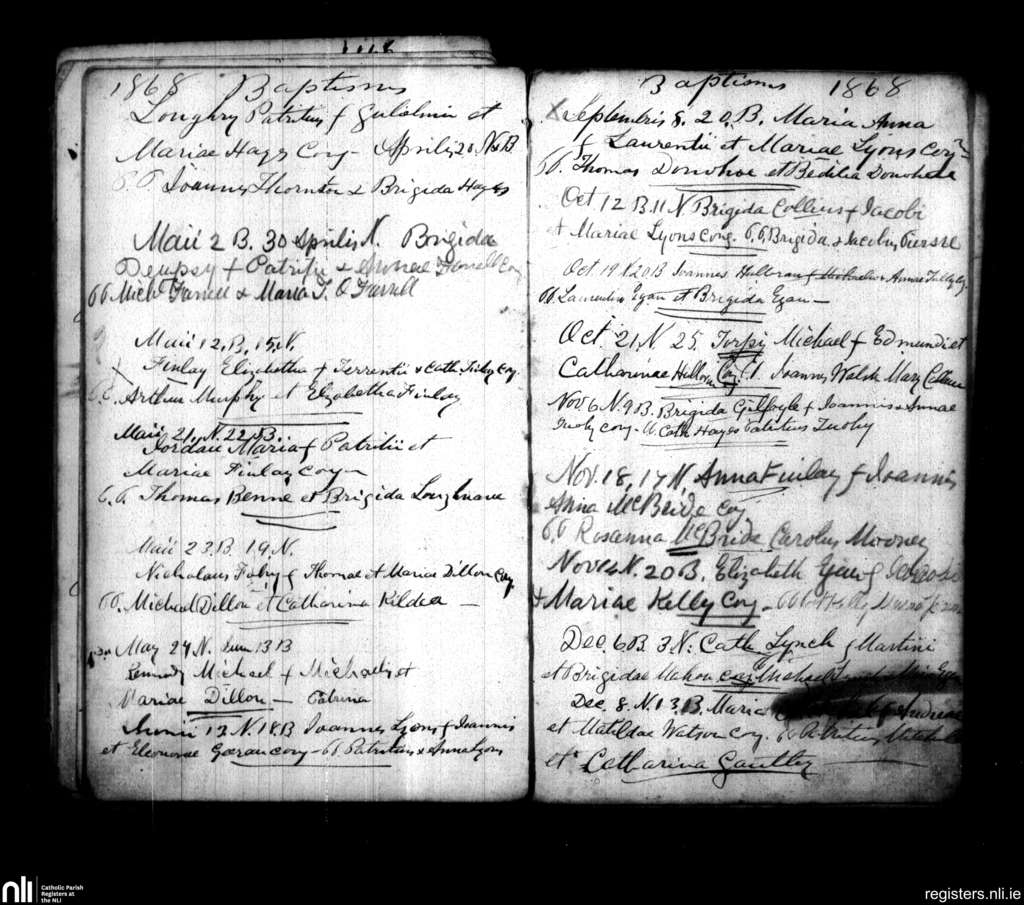 1868 Baptisms
Loughry Patritius f Gulielmi et
Mariae Hays Conj - Aprilis 20 N B
P.P. Joannes Thornton & Brigida Hayes
Maii 2 B. 30 Aprilis N. Brigida
Dempsy f Patritii & Annae Farrell Conj
PP Michl Farrell & Maria T. O Farrell
Maii 12, B, 15, N.
Finlay Elizabetha f Terrentii & Cath. Conj.
P.P. Arthur Murphy et Elizabetha Finlay
Maii 21, N. 22, B.
Jordan Maria f Patritii et
Mariae Finlay Conj
P.P. Thomas Benne et Brigida Loughnane
Maii 23. B. 19. N.
Nicholaus f Thomae et Maria Dillon Conj
PP. Michael Dillon et Catharina Kildea -
May 24 N. Juni 13 B
Kennedy Michael f Michaelis et
Mariae Dillon -
Junii 12 N. 18. B Joannes Lyons f Joannis
et Eleonorae conj - PP Patritius & Anna Lyons
Baptisms 1868
Septembris 8. 20, B. Maria Anna
f Laurentii et Mariae Lyons Conj
PP. Thomas Donohoe et Bedilia Donohoe
Oct 12 B. 11 N Brigida Collins f Jacobi
et Mariae Lyons Conj. P.P. Brigida & Jacobus Pierse
Oct. 19 N 20 B Joannes f Michaelis & Annae Conj.
PP. Laurentius Egan et Brigida Egan -
Oct. 21, N 25. Torpy Michael f Edmundi et
Catharinae Conj. PP Joannes Walsh Mary
Nov. 6 N. 9 B. Brigida Gilfoyle f Joannis & Annae
Tuohy conj - PP. Cath Hayes Patritius Tuohy
Nov. 18, 17 N, Anna Finlay f Joannis
Anna McBride Conj
PP Rosanna McBride Carolus Mooney
Nov N. 20 B. Elizabeth f
Mariae Kelly Conj - PP Kelly
Dec. 6 B. 3 N: Cath Lynch f Martini
et Brigidae Mahon Conj Michael
Dec. 8. N. 13. B. Maria f Andreae
et Matildae Watson Conj. PP Patritius
et Catharina
nli
Catholic Parish
Registers at
the NLI
registers.nli.ie